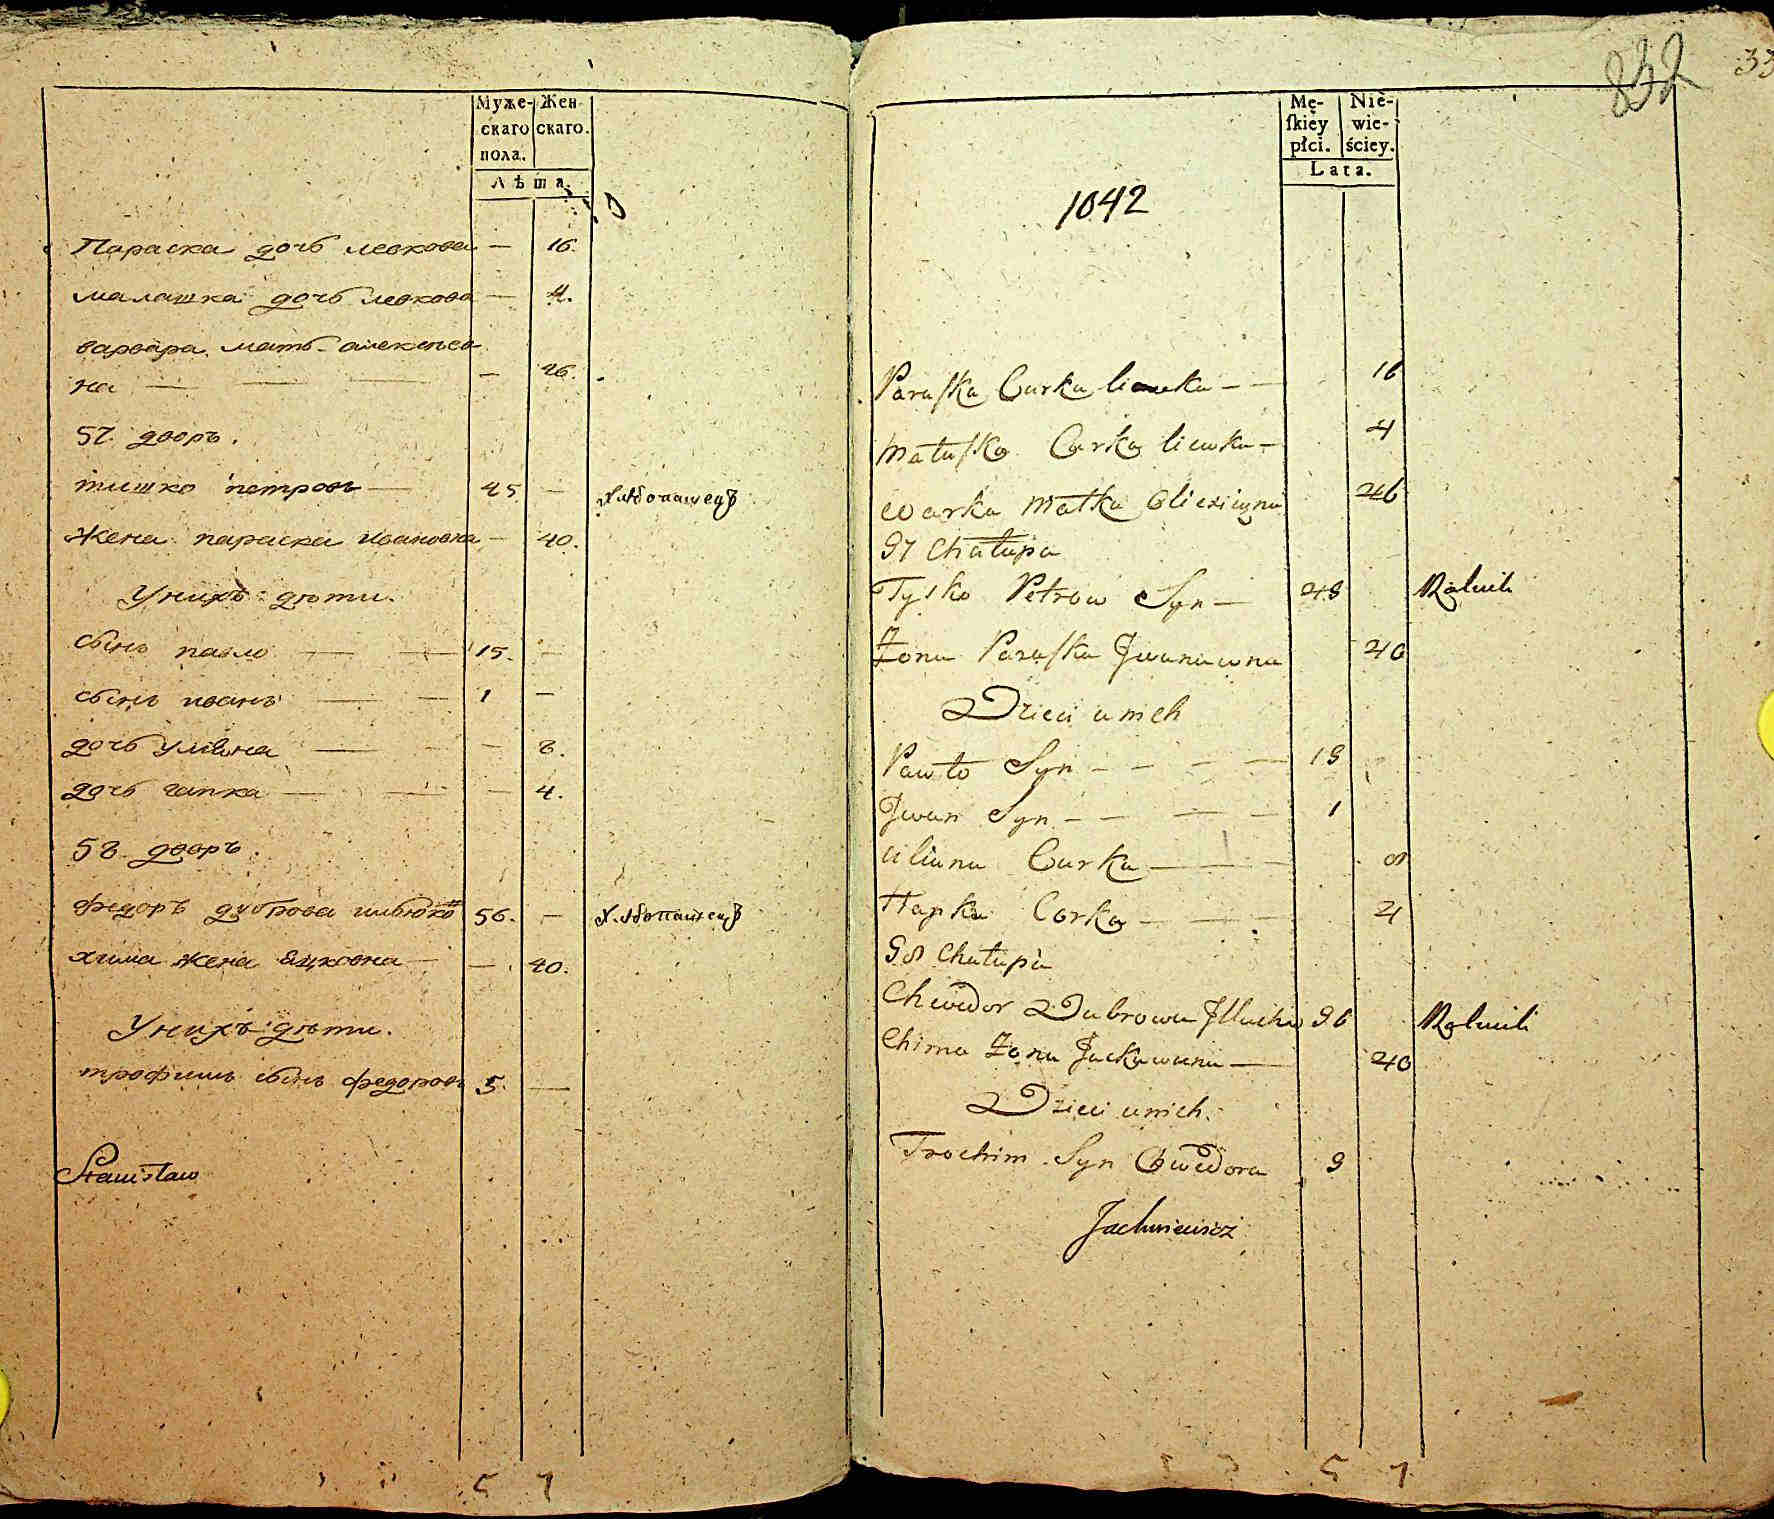 Муже- Жен-
скаго скаго.
пола.
Лѣта.
Параска дочь левкова — 16.
малашка дочь левкова — 4.
варвара мать алексѣев
на — 46.
57 дворъ.
тишко петровъ — 45. — хлѣбопашецъ
жена параска ивановна — 40.
У нихъ дѣти.
сынъ павло — 15. —
сынъ иванъ — 1 —
дочь улiяна — 8.
дочь гапка — 4.
58 дворъ.
федоръ дуброва 56. — хлѣбопашецъ
хима жена яцковна — 40.
У нихъ дѣти.
трофимъ сынъ федоровъ 5. —
Stanisław
5 7
832 33
Mę- Nie-
ſkiey wie-
płci. ściey.
Lata.
1042
Paraſka Curka liewka — 16
Małaſka Curka liewka — 4
Warka Matka 46
57 Chałupa
Tyſko Petrow Syn — 45 Rolnik
Żona Paraſka Jwanawna 40
Dzieci u nich
Pawło Syn — 15
Jwan Syn — 1
Uliana Curka — 8
Hapka Corka — 4
58 Chałupa
Chwedor Dubrowa 56 Rolnik
Chima Żona Jackawana — 40
Dzieci u nich.
Trochim Syn Chwedora 5
Jachniewicz
5 7